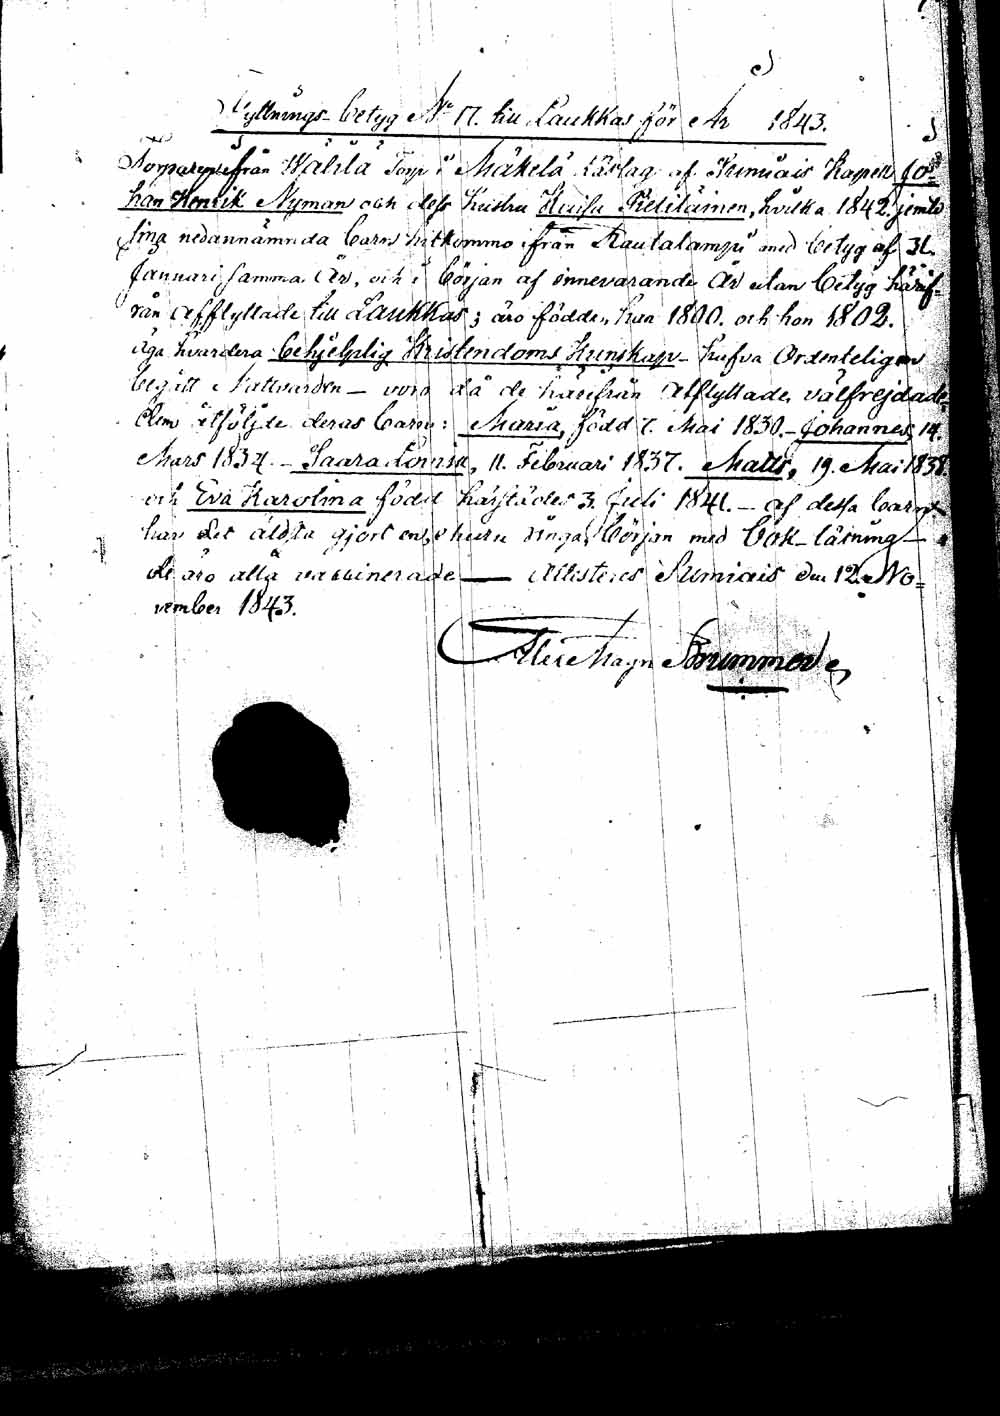 Flyttnings-betyg No 17. till Laukkas för År 1843.
Torparen från Wählä Torp i Mäkelä Läslag af Sumiais Kapell Jo=
han Henrik Nyman och dess hustru Pietiläinen, hvilka 1842. jemte
sina nedannämnda barn hitkommo från Rautalampi med betyg af 31.
Januari samma År, och i början af innevarande År utan betyg häri=
från afflyttade till Laukkas; äro födde, han 1800. och hon 1802.
äga hvardera behjelplig Kristendoms Kunskap - hafva Ordenteligen
begått Nattvarden - voro då de härifrån afflyttade, välfrejdade.
Dem åtföljde deras barn: Maria, född 7. Mai 1830. - Johannes, 14.
Mars 1834. - Saara Lovisa, 11. Februari 1837. Matts, 19. Mai 1838.
och Eva Karolina född härstädes 3. Juli 1841. - af dessa barn
har det äldsta gjort en, ehuru ringa, början med bok-läsning -
de äro alla vaccinerade - Attesteres Sumiais den 12. No=
vember 1843.
Alex Magn Brummer